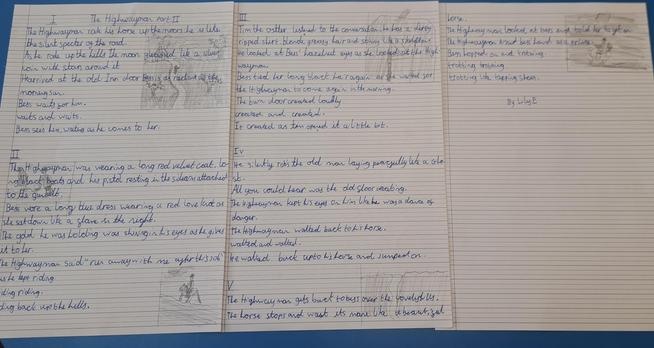 I The Highwayman Part II
The Highwayman rode his horse up the moors he is like
the silent specter of the road.
As he rode up the hills the moon gleamed like a silver
coin with stars around it
He arrived at the old Inn door Bess is as radiant as the
morning sun.
Bess waits for him.
waits and waits.
Bess sees him, waiting as he comes to her.
II
The Highwayman was wearing a long red velvet coat, lo-
ng black boots and his pistol resting in the sidearm attached
to the
Bess wore a long blue dress wearing a red love knot as
she sat down like a in the night.
The gold he was holding was shining in his eyes as he gives
it to her.
The Highwayman said "run away with me after this job"
as he kept riding
iding riding.
ding back up the hills.
III
Tim the ostler listened to the conversation he has a dirty
ripped shirt blonde greasy hair and
He looked at Bess' hazelnut eyes as she looked at the High-
wayman.
Bess tied her long black hair again as she waited for
the Highwayman to come again in the morning.
The barn door creaked loudly
creaked and creaked.
It creaked as Tim opened it a little bit.
IV
He silently robs the old man laying peacefully like a gho-
st.
All you could hear was the old floor creaking.
The Highwayman kept his eyes on him like he was a dance of
danger.
The Highwayman walked back to his horse.
walked and walked.
He walked back up to his horse and jumped on.
V
The Highwayman gets back to bess over the hills.
The horse stops and its mane like a beautiful
horse.
The Highwayman looked at bess and told her to get on
The Highwayman
Bess hopped on and trotting
trotting trotting
trotting like tapping shoes.
By Lily E